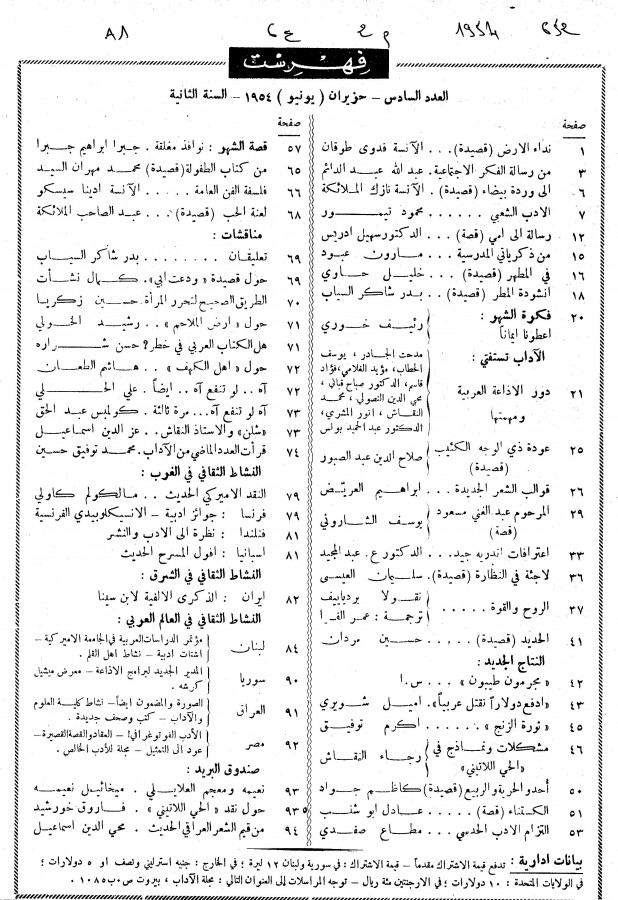 A8 ع6 م2 1954 652
فهرست
العدد السادس - حزيران ( يونيو ) ١٩٥٤ - السنة الثانية
صفحة
١ نداء الارض (قصيدة) . . . الآنسة فدوى طوقان
٣ من رسالة الفكر الاجتماعية . عبد الله عبد الدائم
٦ الى وردة بيضاء (قصيدة) . الآنسة نازك الملائكة
٧ الادب الشعبي . . . . . . محمود تيمور
١٢ رسالة الى امي (قصة) . . الدكتور سهيل ادريس
١٥ من ذكرياتي المدرسية . . . مارون عبود
١٦ في المطهر (قصيدة) . . . خليل حاوي
١٨ انشودة المطر (قصيدة) . . بدر شاكر السياب
٢٠ فكرة الشهر :
اعطونا ايماناً } رئيف خوري
الآداب تستفتي :
٢١ دور الاذاعة العربية ومهمتها
مدحت الجادر ، يوسف
الخطاب ، مؤيد الغلامي ، فؤاد
قاسم ، الدكتور صباح قباني ،
محي الدين النصولي ، محمد
النقاش ، انور المشري ،
الدكتور عبد الحميد يونس
٢٥ عودة ذي الوجه الكئيب
(قصيدة) } صلاح الدين عبد الصبور
٢٦ قوالب الشعر الجديدة . . . ابراهيم العريض
٢٩ المرحوم عبد الغني مسعود
(قصة) } يوسف الشاروني
٣٣ اعترافات اندريه جيد . . الدكتور ع . عبد المجيد
٣٦ لاجئة في النظارة (قصيدة) . سليمان العيسى
٣٧ الروح والقوة . . . . . { نقولا بردياييف
ترجمة : عمر الفرا
٤١ الحديد (قصيدة) . . . . حسين مردان
النتاج الجديد :
٤٢ « مجرمون طيبون » . . . س . ا
٤٣ « ادفع دولاراً تقتل عربياً » . اميل شويري
٤٥ « ثورة الزنج » . . . . . اكرم توفيق
٤٦ مشكلات ونماذج في
« الحي اللاتيني » } رجاء النقاش
٥٠ أحدو الحرية والربيع (قصيدة) كاظم جواد
٥١ الكستناء (قصة) . . . . عادل ابو شنب
٥٣ التزام الادب الحدسي . . . مطاع صفدي
صفحة
٥٧ قصة الشهر : نوافذ مغلقة . جبرا ابراهيم جبرا
٦٥ من كتاب الطفولة (قصيدة) محمد مهران السيد
٦٦ فلسفة الفن العامة . . . . . الآنسة ادينا سيسكو
٦٨ لعنة الحب (قصيدة) . . . عبد الصاحب الملائكة
مناقشات :
٦٩ تعليقان . . . . . . . بدر شاكر السياب
٦٩ حول قصيدة « ودعت ابي » . كمال نشأت
٧٠ الطريق الصحيح لتحرر المرأة . حسين زكريا
٧١ حول « ارض الملاحم » . . رشيد الخولي
٧١ هل الكتاب العربي في خطر ? حسن شراره
٧٢ حول « اهل الكهف » . . هاشم الطعان
٧٢ آه . . لو تنفع آه . . ايضاً . علي الحلي
٧٣ آه لو تنفع آه . . . مرة ثالثة . كولمبس عبد الحق
٧٣ « شلن » والاستاذ النقاش . . عز الدين اسماعيل
٧٤ قرأت العدد الماضي من الآداب . محمد توفيق حسين
النشاط الثقافي في الغرب :
٧٩ النقد الاميركي الحديث . . مالكولم كاولي
٧٩ فرنسا : جوائز ادبية - الانسيكلوبيدي الفرنسية
٨١ فنلندا : نظرة الى الادب والنشر
٨١ اسبانيا : افول المسرح الحديث
النشاط الثقافي في الشرق :
٨٢ ايران : الذكرى الالفية لابن سينا
النشاط الثقافي في العالم العربي :
٨٤ لبنان { مؤتمر الدراسات العربية في الجامعة الاميركية -
اشتات ادبية - نشاط اهل القلم .
٩٠ سوريا { المدير الجديد لبرامج الاذاعة - معرض ميشيل
كرشه .
٩١ العراق { الصورة والمضمون ايضاً - نشاط كلية العلوم
والآداب - كتب وصحف جديدة .
٩٢ مصر { الأدب الفوتوغرافي ! - العقاد والقصة القصيرة -
عود الى التمثيل - مجلة للأدب الخالص .
صندوق البريد :
٩٣ نعيمه ومعجم العلايلي . ميخائيل نعيمه
٩٣ حول نقد « الحي اللاتيني » . فاروق خورشيد
٩٤ من قيم الشعر العراقي الحديث . محي الدين اسماعيل
بيانات ادارية : تدفع قيمة الاشتراك مقدماً - قيمة الاشتراك : في سورية ولبنان ١٢ ليرة ؛ في الخارج : جنيه استرليني ونصف او ٥ دولارات ؛
في الولايات المتحدة : ١٠ دولارات ؛ في الارجنتين مئة ريال - توجه المراسلات الى العنوان التالي : مجلة الآداب ، بيروت ص.ب ١٠٨٥ .